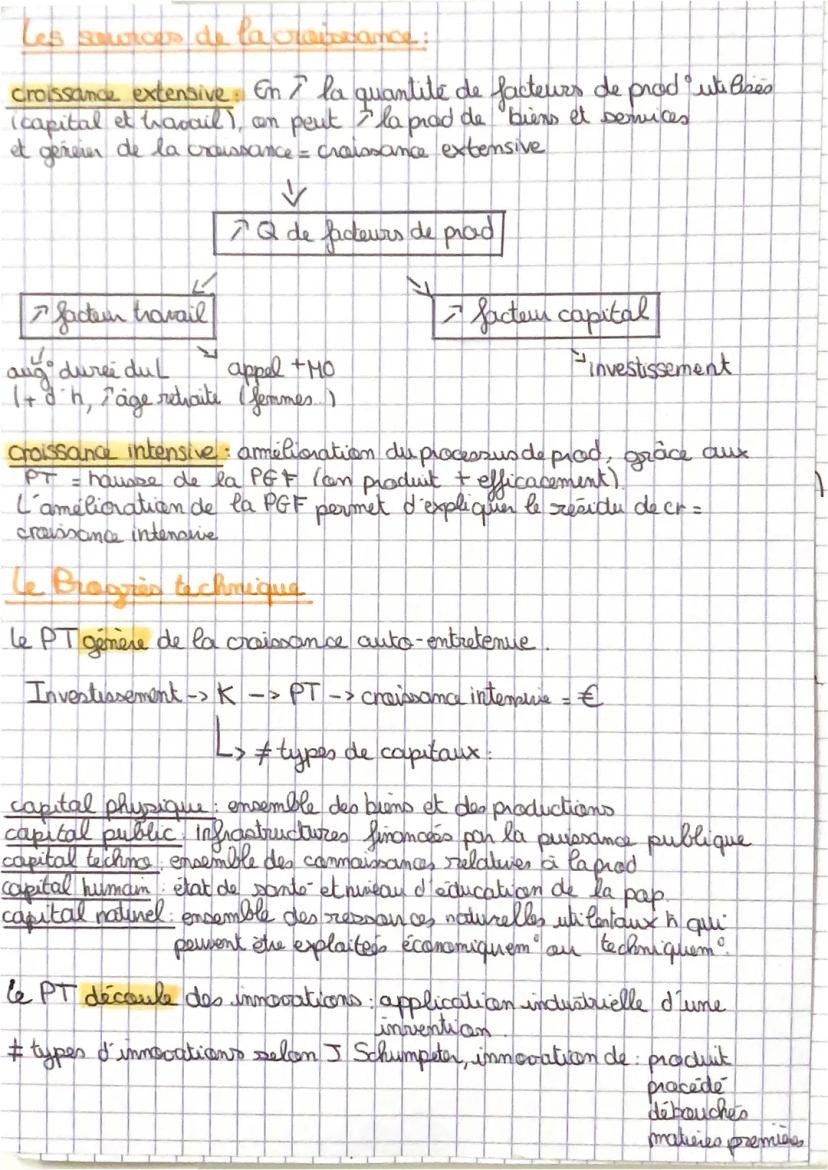 Les sources de la croissance :
croissance extensive : En ↗ la quantité de facteurs de prod° utilisés
(capital et travail), on peut ↗ la prod de biens et services
et générer de la croissance = croissance extensive
↗ Q de facteurs de prod
↗ facteur travail
↗ facteur capital
aug° durée du L
appel + MO
investissement
(+ d'h, ↗ âge retraite
(femmes..)
croissance intensive : amélioration du processus de prod, grâce aux
PT = hausse de la PGF (on produit + efficacement)
L'amélioration de la PGF permet d'expliquer le résidu de cr =
croissance intensive
Le Progrès technique
le PT génère de la croissance auto-entretenue.
Investissement -> K -> PT -> croissance intensive = €
↳ ≠ types de capitaux :
capital physique : ensemble des biens et des productions
capital public : infrastructures financées par la puissance publique
capital techno : ensemble des connaissances relatives à la prod
capital humain : état de santé et niveau d'éducation de la pop.
capital naturel : ensemble des ressources naturelles aux h qui
peuvent être exploités économiquem° ou techniquem°.
Le PT découle des innovations : application industrielle d'une
invention
≠ types d'innovations selon J Schumpeter, innovation de : produit
procédé
débouchés
matières premières